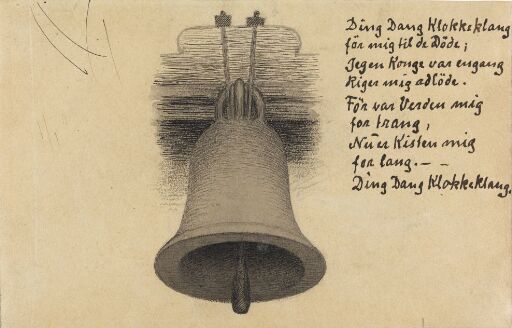 Ding Dang Klokkeklang
för mig til de Döde;
Jegen Konge var engang
Riger mig adlöde.
För var Verden mig
for trang,
Nu er Kisten mig
for lang. – –
Ding Dang Klokkeklang.